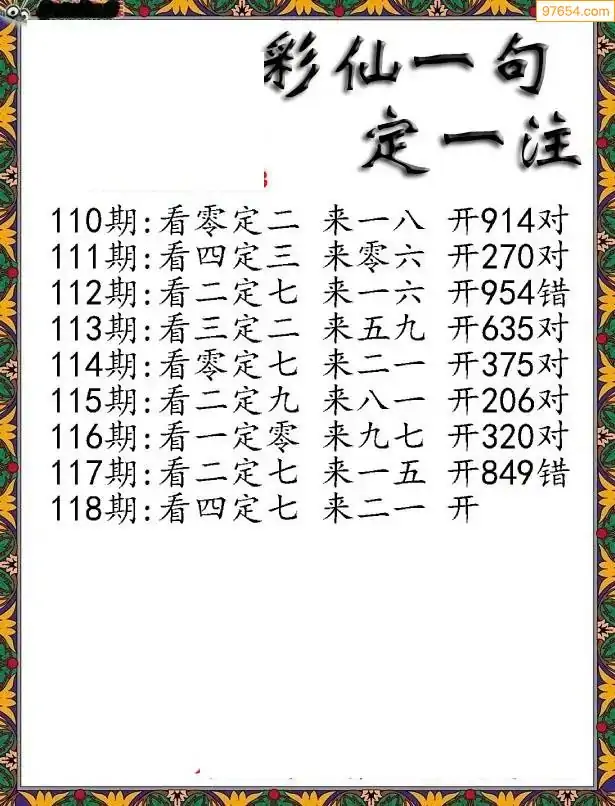 97654.com
彩仙一句
定一注
110期:看零定二 来一八 开914对
111期:看四定三 来零六 开270对
112期:看二定七 来一六 开954错
113期:看三定二 来五九 开635对
114期:看零定七 来二一 开375对
115期:看二定九 来八一 开206对
116期:看一定零 来九七 开320对
117期:看二定七 来一五 开849错
118期:看四定七 来二一 开